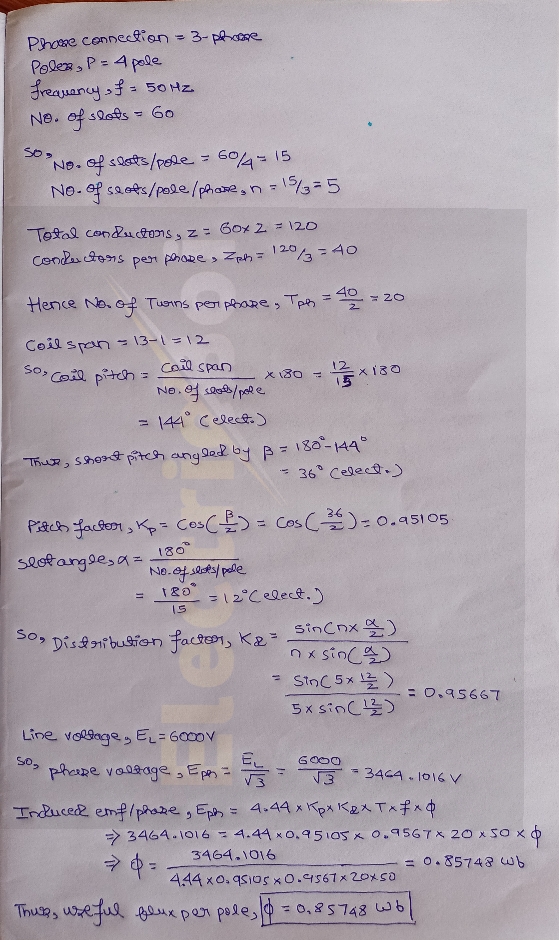 Phase connection = 3-phase
Poles, P = 4 pole
frequency, f = 50 Hz
No. of slots = 60
So, No. of slots/pole = 60/4 = 15
No. of slots/pole/phase, n = 15/3 = 5
Total conductors, z = 60 x 2 = 120
Conductors per phase, Zph = 120/3 = 40
Hence No. of Turns per phase, Tph = 40/2 = 20
Coil span = 13-1 = 12
So, Coil pitch = Coil span / No. of slots/pole x 180 = 12/15 x 180
= 144° (elect.)
Thus, short pitch angled by β = 180° - 144°
= 36° (elect.)
Pitch factor, Kp = Cos(β/2) = Cos(36/2) = 0.95105
Slot angle, α = 180° / No. of slots/pole
= 180° / 15 = 12° (elect.)
So, Distribution factor, Kd = sin(n x α/2) / n x sin(α/2)
= Sin(5 x 12/2) / 5 x sin(12/2) = 0.95667
Line voltage, EL = 6000V
So, phase voltage, Eph = EL/√3 = 6000/√3 = 3464.1016 V
Induced emf/phase, Eph = 4.44 x Kp x Kd x T x f x φ
⇒ 3464.1016 = 4.44 x 0.95105 x 0.9567 x 20 x 50 x φ
⇒ φ = 3464.1016 / 4.44 x 0.95105 x 0.9567 x 20 x 50 = 0.85748 wb
Thus, useful flux per pole, φ = 0.85748 Wb